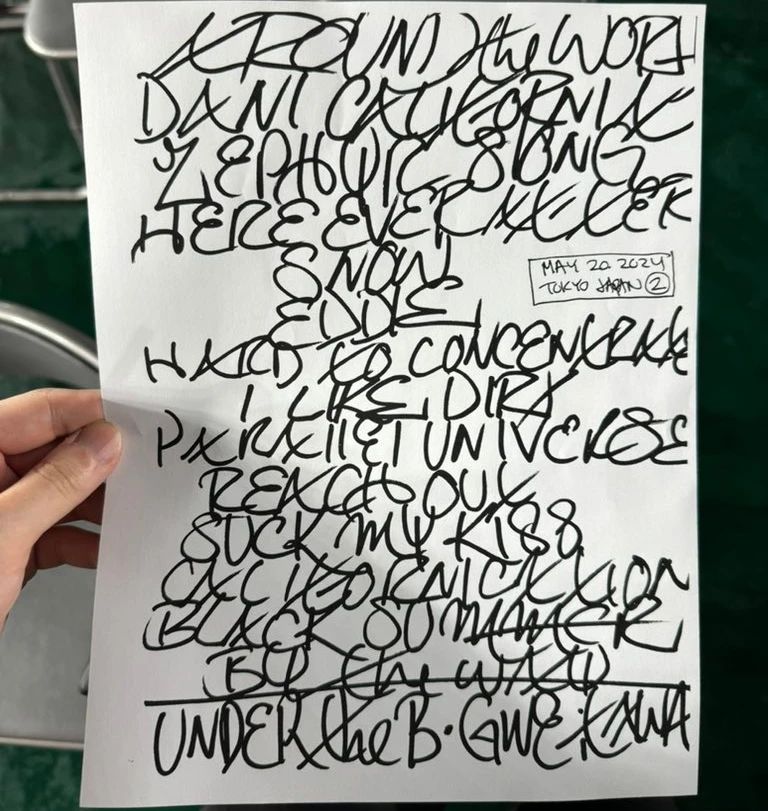 AROUND the WORL
DANI CALIFORNIA
ZEPHYR SONG
HERE EVER AFTER
SNOW
EDDIE
MAY 20 2024
TOKYO JAPAN 2
HARD TO CONCENTRATE
I LIKE DIRT
PARALLEL UNIVERSE
REACH OUT
SUCK MY KISS
CALIFORNICATION
BLACK SUMMER
BY the WAY
UNDER the B. GIVE it AWA